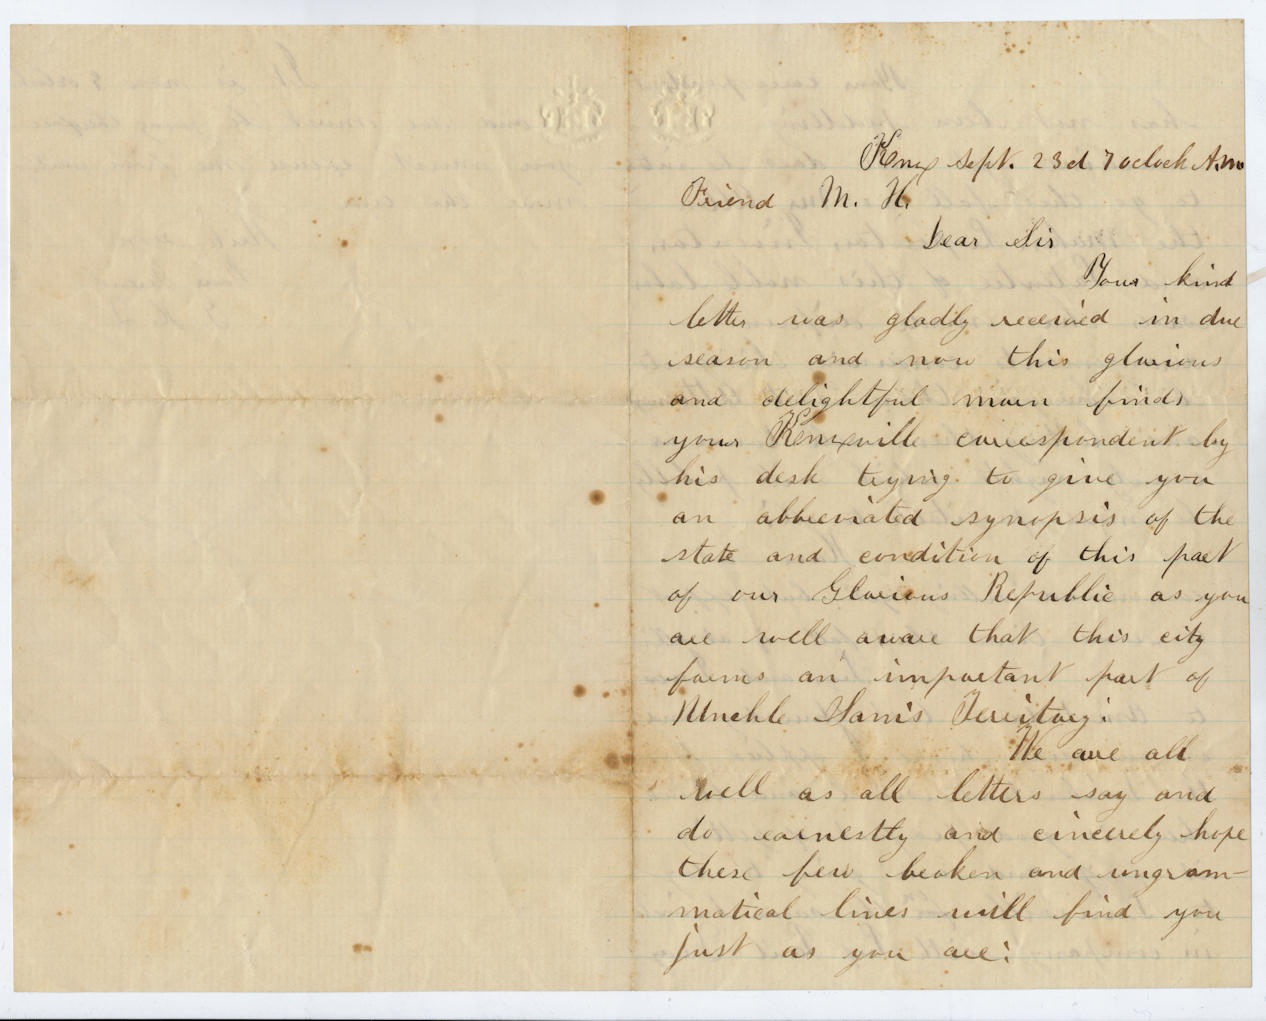 Knox Sept. 23d 7 oclock A.M
Friend M. H.
Dear Sir
Your kind
letter was gladly received in due
season and now this glorious
and delightful morn finds
your Knoxville correspondent by
his desk trying to give you
an abbreviated synopsis of the
state and condition of this part
of our Glorious Republic as you
are well aware that this city
forms an important part of
Unckle Sam's Territory:
We are all
well as all letters say and
do earnestly and cincerely hope
these few broken and ungram-
matical lines will find you
just as you are: